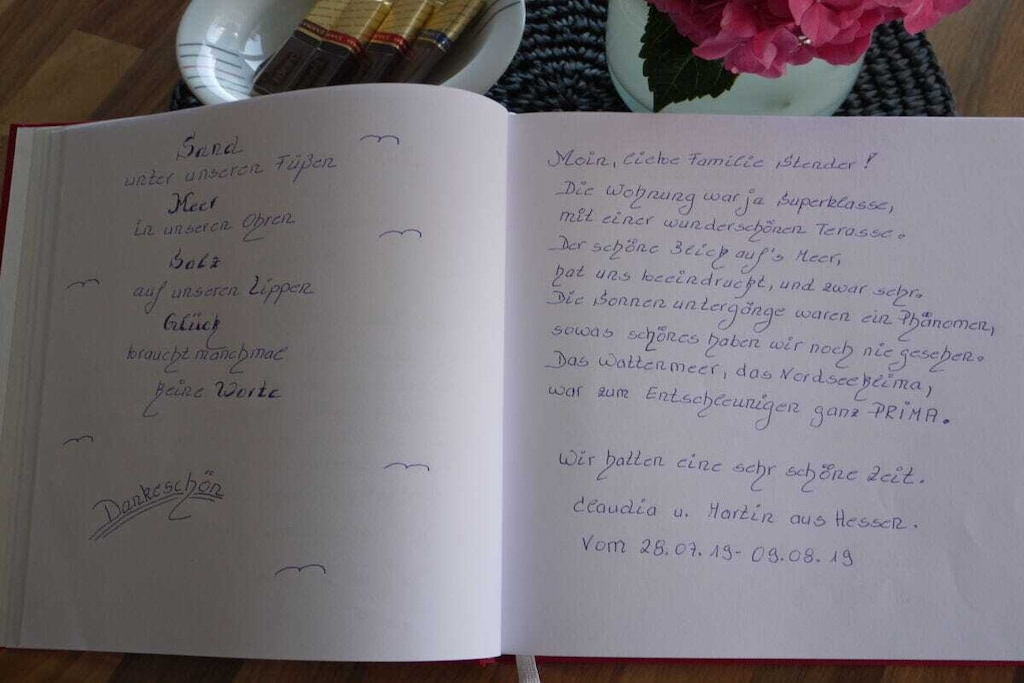 Sand
unter unseren Füßen
Meer
in unseren Ohren
Salz
auf unseren Lippen
Glück
braucht manchmal
keine Worte
Dankeschön
Moin, liebe Familie Stender!
Die Wohnung war ja Superklasse,
mit einer wunderschönen Terasse.
Der schöne Blick auf's Meer,
hat uns beeindruckt, und zwar sehr.
Die Sonnenuntergänge waren ein Phänomen,
sowas schönes haben wir noch nie gesehen.
Das Wattenmeer, das Nordseeklima,
war zum Entschleunigen ganz PRIMA.
Wir hatten eine sehr schöne Zeit.
Claudia u. Martin aus Hessen.
Vom 28.07.19-09.08.19